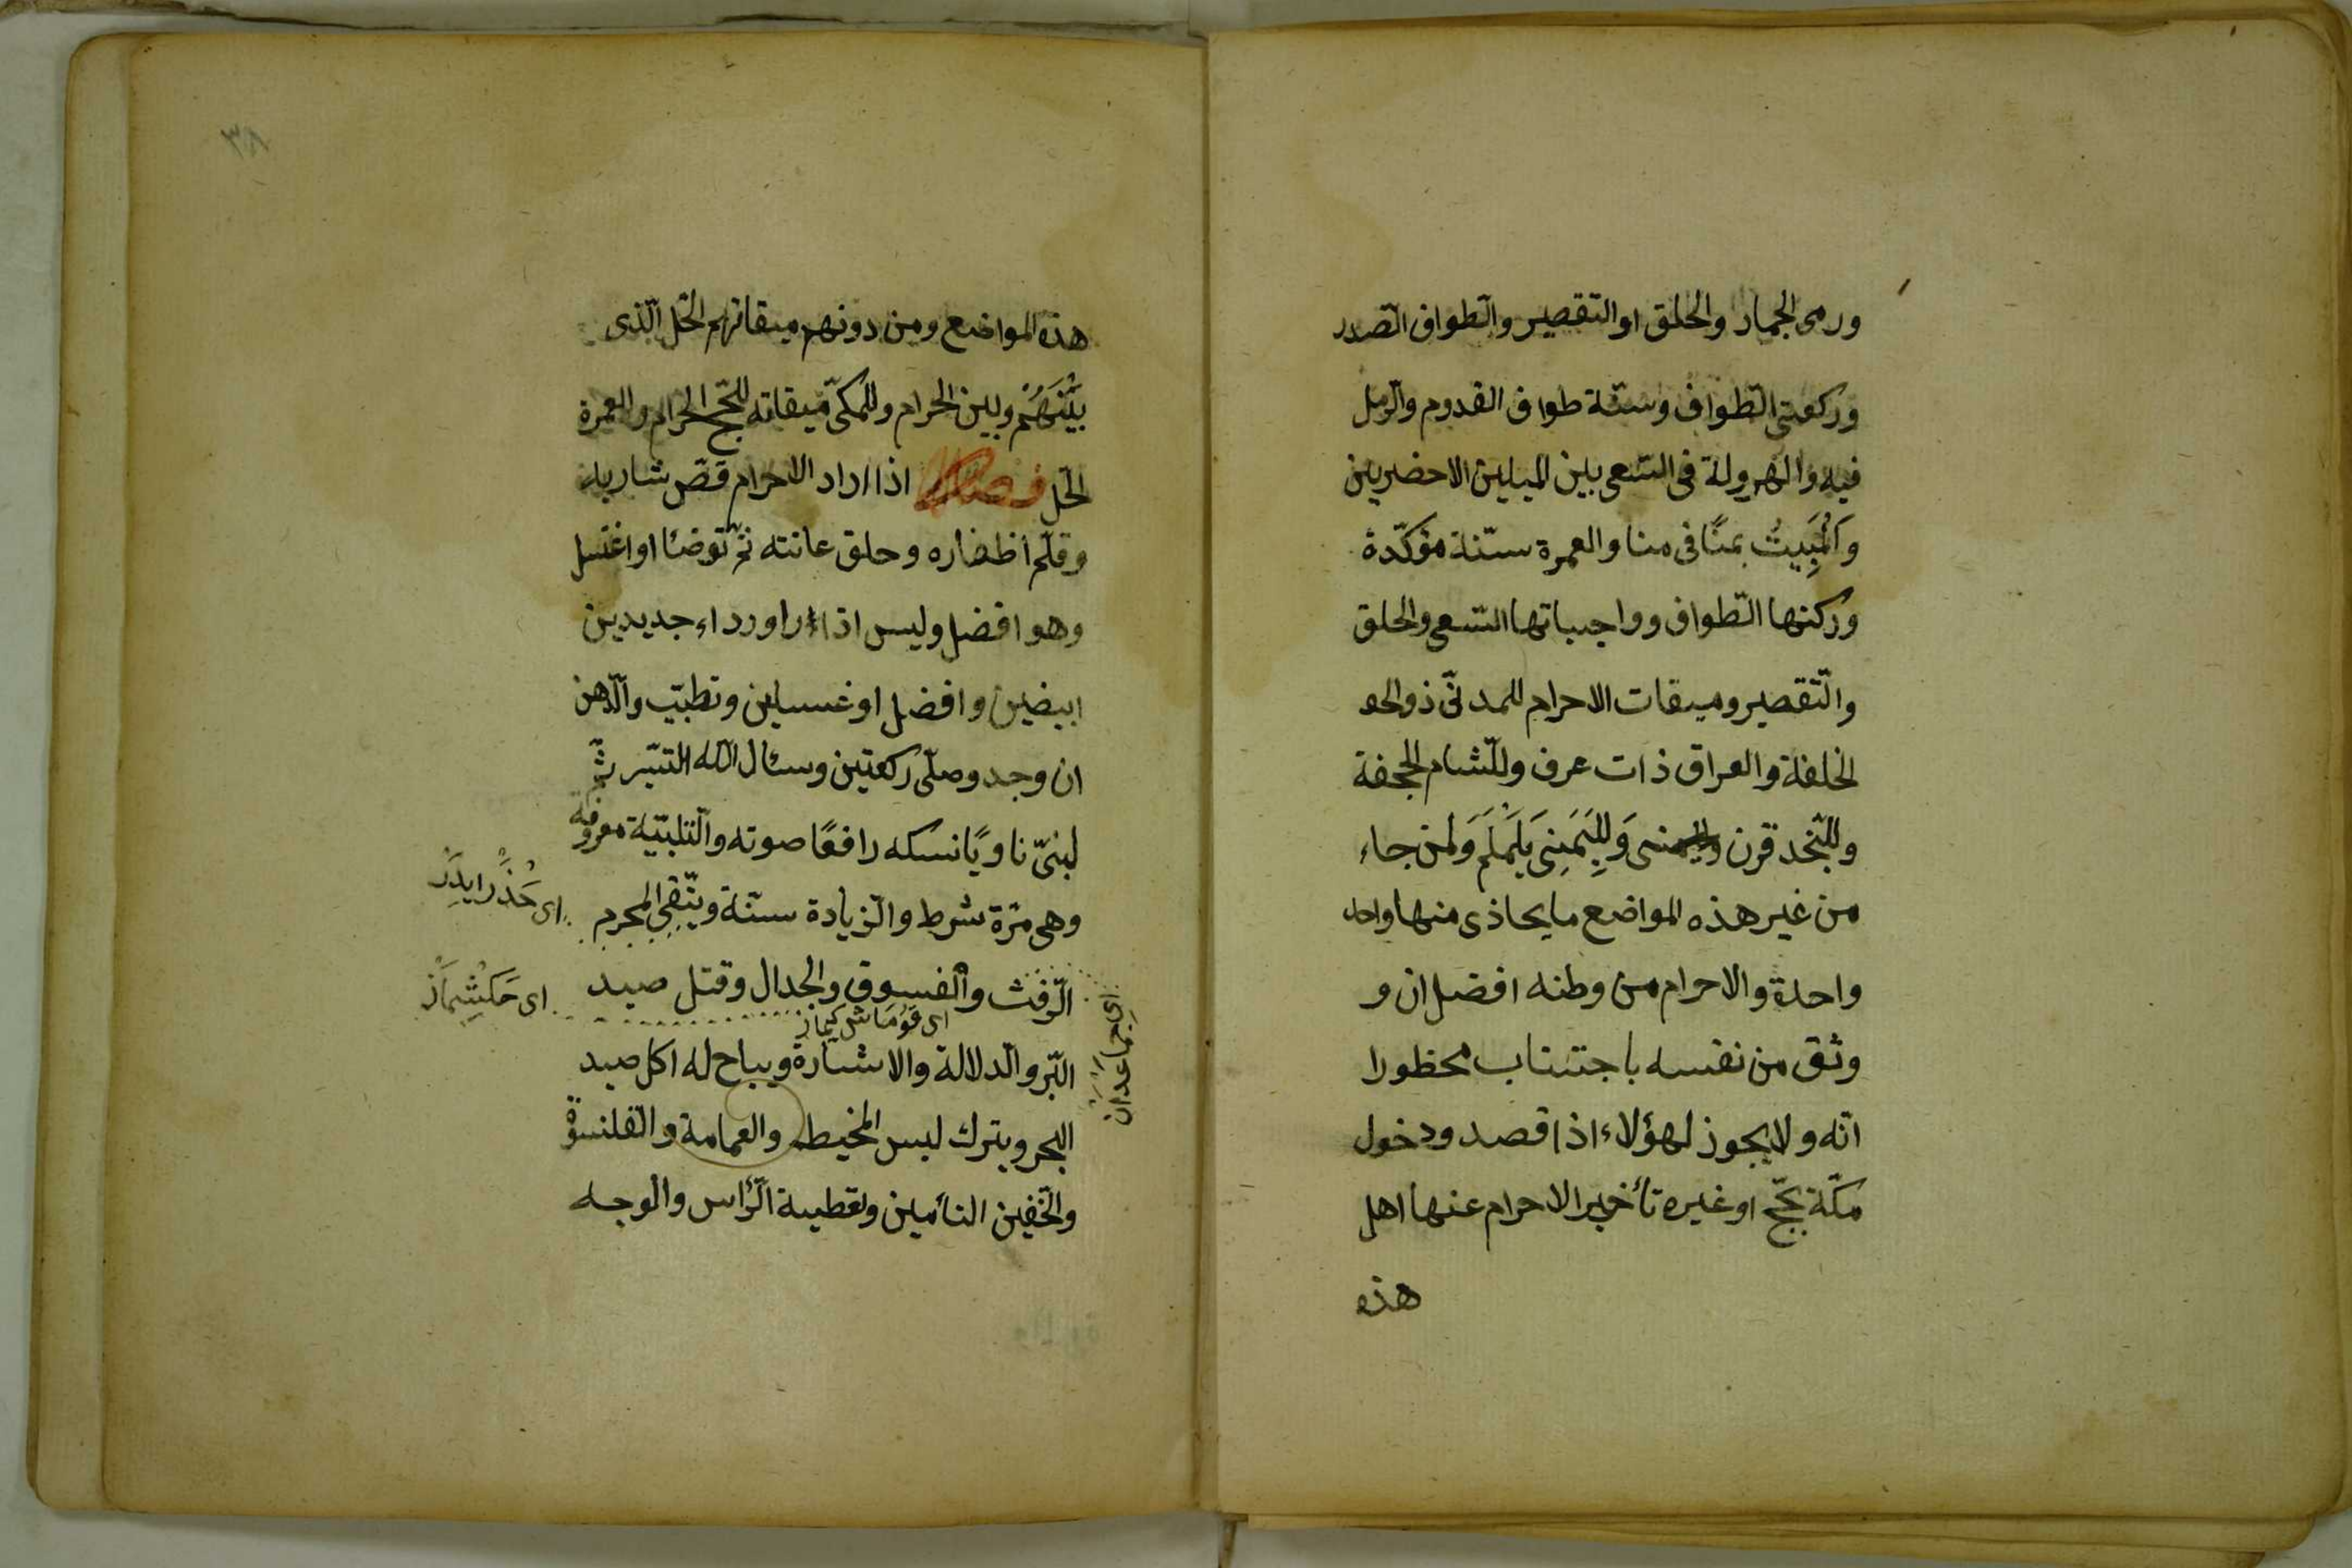 ورمى الجمار والحلق او التقصير والطواف الصدر
وركعتى الطواف وسنّة طواف القدوم والرمل
فيه والهرولة فى السعى بين الميلين الاحضرين
وَالْمَبِيتُ بمنًا فى منا والعمرة سنّة مؤكّدة
وركنها الطّواف وواجباتها السّعى والحلق
والتّقصير وميقات الاحرام للمدنىّ ذوالحو
الخلفة والعراق ذات عرف وللشّام الجحفة
وللنّجد قرن وَلِلْيَمَنِى يَلَمْلَمَ وَلمن جاء
من غير هذه المواضع ما يحاذى منها واحد
واحدة والاحرام من وطنه افضل ان و
وثق من نفسه باجتناب محظورا
اته ولا يجوز لهؤلاء اذا قصد ودخول
مكّة بحجّ او غيره تأخير الاحرام عنها اهل
هذه
٣٨
هذه المواضع ومن دونهم ميقاتهم الحلّ الّذى
بَيْنَهُمْ وبين الحرام وللمكىّ ميقاته للحجّ الحرام والعمرة
الحلّ فصل اذا اراد الاحرام قصّ شاربه
وقلّم اظفاره وحلق عانته ثمّ توضئا او اغتسل
وهو افضل ولبس اذا ارا ورداء جديدين
ابيضين وافضل او غسيلين وتطيّب وادّهن
ان وجد وصلّى ركعتين وسئال اللّه التيسّر ثمّ
لبىّ ناويًا نسكه رافعًا صوته والتّلبيّة معروفة
وهى مرّة شرط والزّيادة سنّة ويتّقى المحرم
اى حَذَّرْ ايدَرْ
الرّفث والفسوق والجدال وقتل صيد
اى جَكَشْمَازْ
اى جماعدان
اى قَوُمَاشْ كيماز
البّر والدلالة والاشارة ويباح له اكل صيد
البحر ويترك لبس المخيط والعمامة والقلنسوة
والخّفين النأمين وتغطيبة الرّأس والوجه